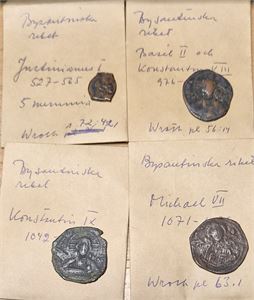 Byzantinska
riket
Justinianus I
527-565
5 nummi
Wroth
Byzantinska
riket
Basil II och
Konstantin VIII
976-
Wroth pl 56:14
Byzantinska
riket
Konstantin IX
1042-
Byzantinska riket
Michael VII
1071-
Wroth pl 63.1